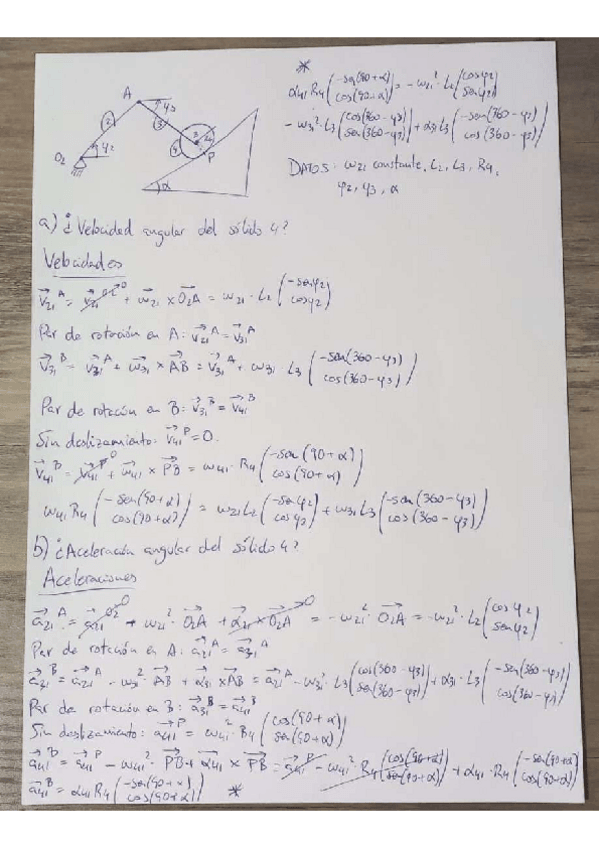 A
φ3
2
3
O2
φ2
B
4
R4
P
α
*
α41 R4 (-sen(90+α) / cos(90+α)) = -ω21² · L2 (cosφ2 / senφ2)
-ω31² · L3 (cos(360-φ3) / sen(360-φ3)) + α31 L3 (-sen(360-φ3) / cos(360-φ3))
DATOS: ω21 constante, L2, L3, R4,
φ2, φ3, α
a) ¿Velocidad angular del sólido 4?
Velocidades
v21^A = v21^O2 0 + ω21 × O2A = ω21 · L2 (-senφ2 / cosφ2)
Par de rotación en A: v21^A = v31^A
v31^B = v31^A + ω31 × AB = v31^A + ω31 · L3 (-sen(360-φ3) / cos(360-φ3))
Par de rotación en B: v31^B = v41^B
Sin deslizamiento: v41^P = 0.
v41^B = v41^P 0 + ω41 × PB = ω41 · R4 (-sen(90+α) / cos(90+α))
ω41 R4 (-sen(90+α) / cos(90+α)) = ω21 L2 (-senφ2 / cosφ2) + ω31 L3 (-sen(360-φ3) / cos(360-φ3))
b) ¿Aceleración angular del sólido 4?
Aceleraciones
a21^A = a21^O2 0 + ω21² · O2A + α21 × O2A 0 = -ω21² · O2A = -ω21² · L2 (cosφ2 / senφ2)
Par de rotación en A: a21^A = a31^A
a31^B = a21^A - ω31² · AB + α31 × AB = a21^A - ω31² · L3 (cos(360-φ3) / sen(360-φ3)) + α31 · L3 (-sen(360-φ3) / cos(360-φ3))
Par de rotación en B: a31^B = a41^B
Sin deslizamiento: a41^P = ω41² · R4 (cos(90+α) / sen(90+α))
a41^B = a41^P - ω41² · PB + α41 × PB = a41^P - ω41² R4 (cos(90+α) / sen(90+α)) + α41 · R4 (-sen(90+α) / cos(90+α))
a41^B = α41 R4 (-sen(90+α) / cos(90+α)) *